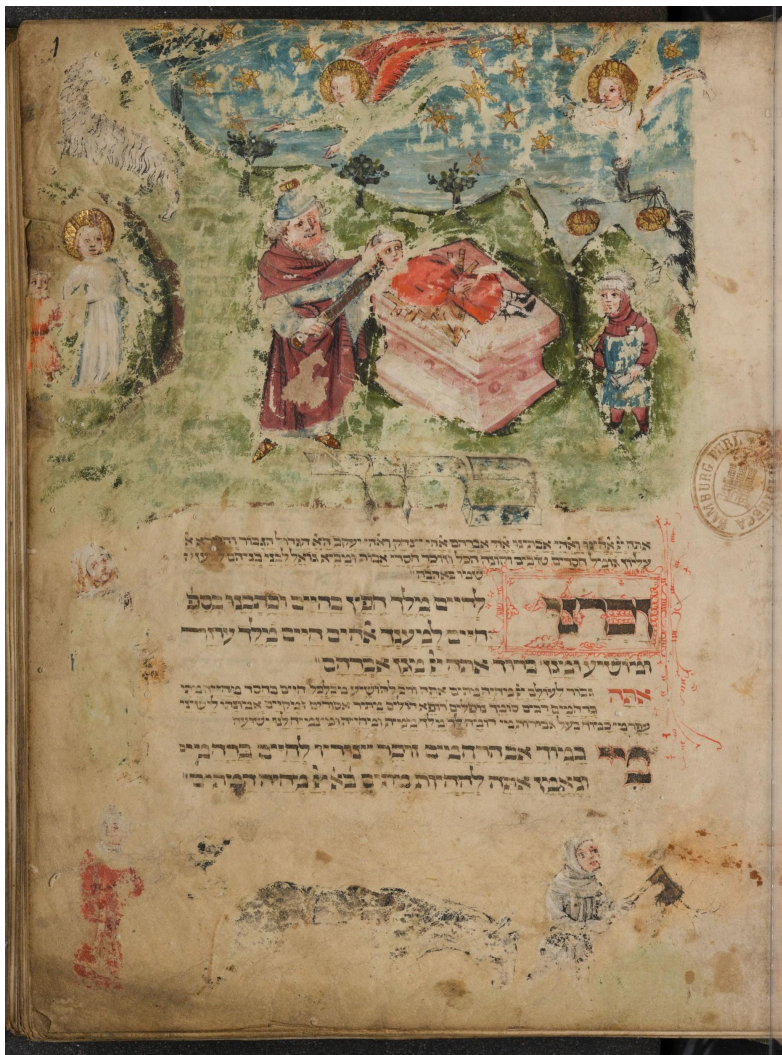 1
ברוך
אתה יי אלהינו ואלהי אבותינו אלהי אברהם אלהי יצחק ואלהי יעקב האל הגדול הגבור והנורא א
עליון גומל חסדים טובים וקונה הכל וזוכר חסדי אבות ומביא גואל לבני בניהם למען
שמו באהבה
זכרינו לחיים מלך חפץ בחיים וכתבנו בספר
חיים למענך אלהים חיים מלך עוזר
ומושיע ומגן ברוך אתה יי מגן אברהם
אתה גבור לעולם יי מחיה מתים אתה ורב להושיע מכלכל חיים בחסד מחיה מתי
ברחמים רבים סומך נופלים רופא חולים מתיר אסורים ומקיים אמונתו לישיני
עפר מי כמוך בעל גבורות מי דומה לך מלך ממית ומחיה ומצמיח לנו ישועה
מי כמוך אב הרחמים זוכר יצוריו לחיים ברחמים
ונאמן אתה להחיות מתים בא״י מחיה המתים
HAMBURG PUBL.